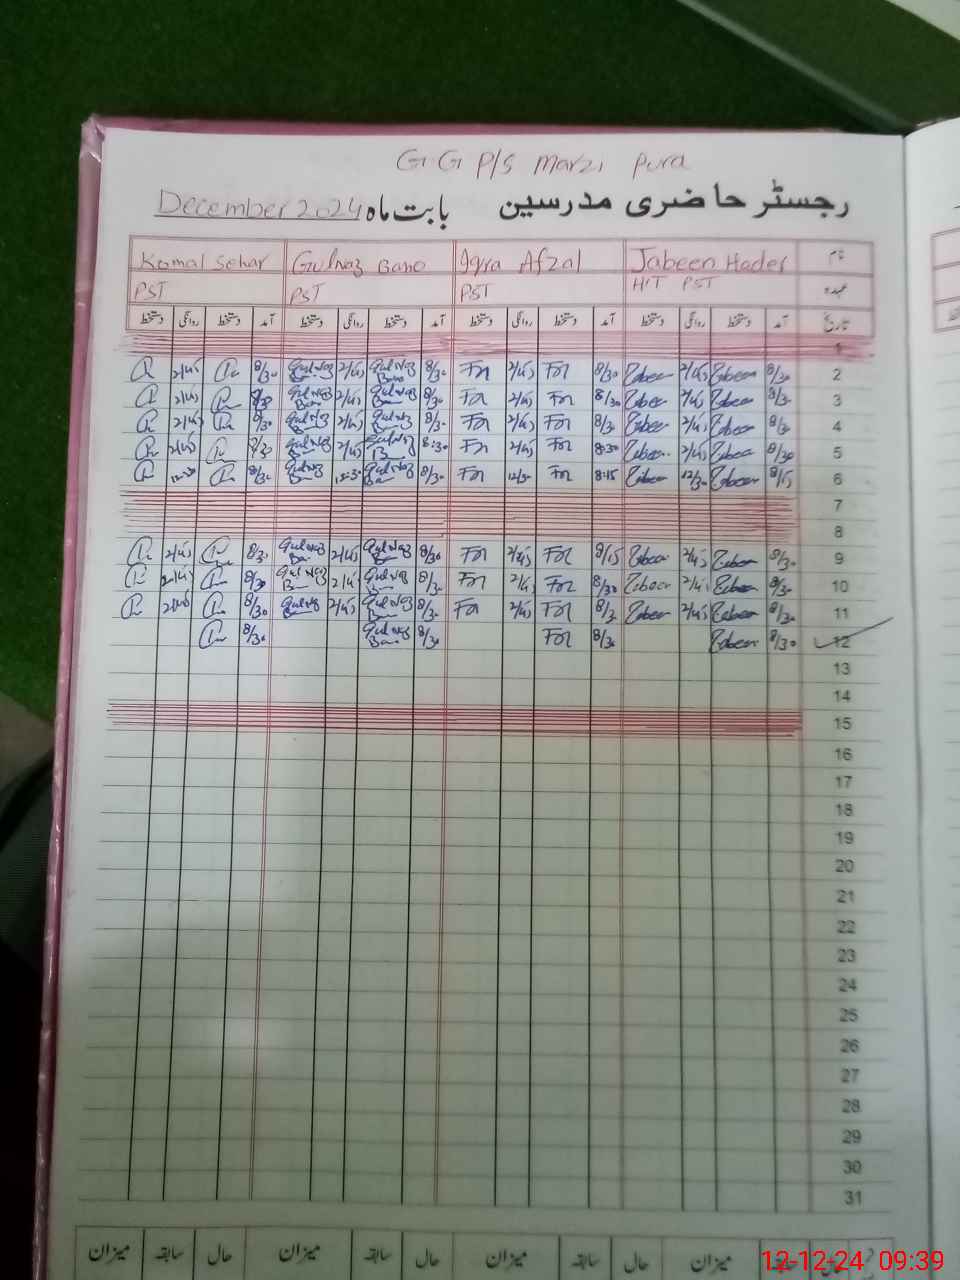 G G P/S Marzi Pura
رجسٹر حاضری مدرسین بابت ماہ December 2024
نام Jabeen Hader Iqra Afzal Gulnaz Bano Komal Sehar
عہدہ H.T PST PST PST PST
تاریخ آمد دستخط روانگی دستخط آمد دستخط روانگی دستخط آمد دستخط روانگی دستخط آمد دستخط روانگی دستخط
1
2 8/30 Jabeen 2/45 Jabeen 8/30 2/45 8/30 Gulnaz Bano 2/45 Gulnaz Bano 8/30 2/45
3 8/30 Jabeen 2/45 Jabeen 8/30 2/45 8/30 Gulnaz Bano 2/45 Gulnaz Bano 8/30 2/45
4 8/30 Jabeen 2/45 Jabeen 8/30 2/45 8/30 Gulnaz Bano 2/45 Gulnaz Bano 8/30 2/45
5 8/30 Jabeen 2/45 Jabeen 8:30 2/45 8:30 Gulnaz Bano 2/45 Gulnaz Bano 8/30 2/45
6 8/15 Jabeen 12/30 Jabeen 8:15 12/30 8/30 Gulnaz Bano 12:30 Gulnaz Bano 8/30 12:30
7
8
9 8/30 Jabeen 2/45 Jabeen 8/15 2/45 8/30 Gulnaz Bano 2/45 Gulnaz Bano 8/30 2/45
10 8/30 Jabeen 2/45 Jabeen 8/30 2/45 8/30 Gulnaz Bano 2/45 Gulnaz Bano 8/30 2/45
11 8/30 Jabeen 2/45 Jabeen 8/30 2/45 8/30 Gulnaz Bano 2/45 Gulnaz Bano 8/30 2/45
12 8/30 Jabeen 8/30 8/30 Gulnaz Bano 8/30
13
14
15
16
17
18
19
20
21
22
23
24
25
26
27
28
29
30
31
حال میزان سابقہ حال میزان سابقہ حال میزان سابقہ حال سابقہ میزان
12-12-24 09:39